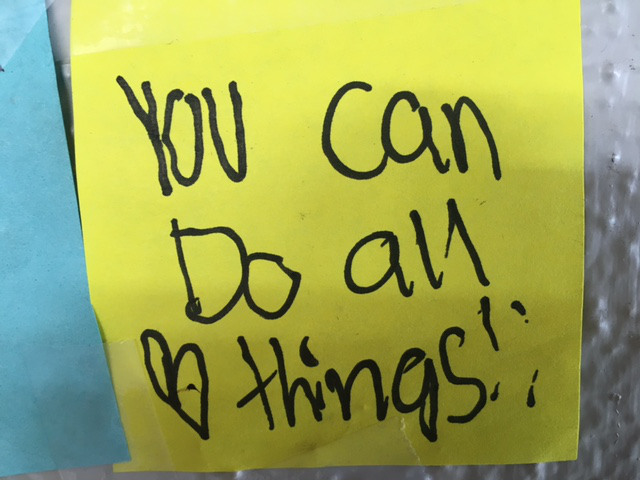 You can
Do all
♡ things!!